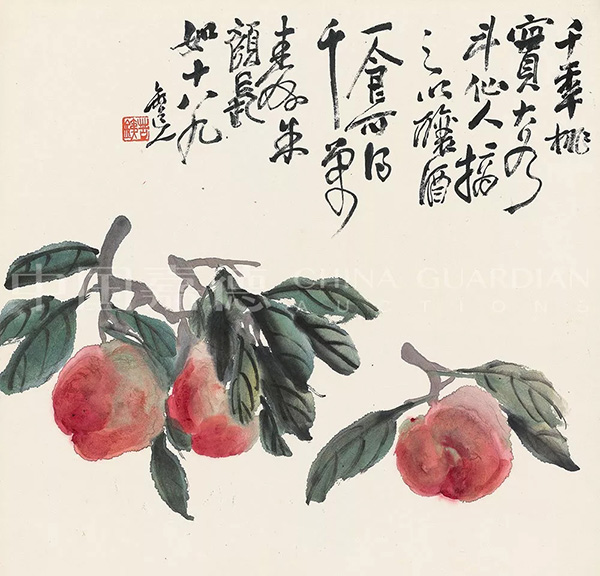 千年桃
實大於
斗仙人摘
之以釀酒
一食可得
千萬
壽朱
顏長
如十八九
中国嘉德 CHINA GUARDIAN
AUCTIONS